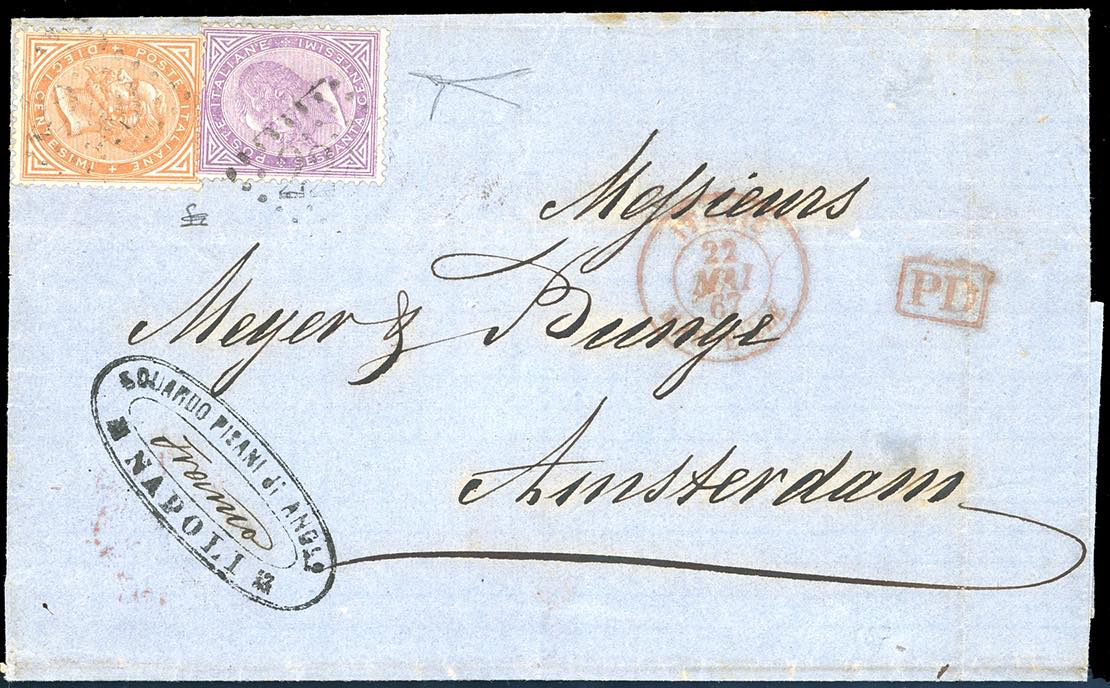 POSTE ITALIANE
DIECI CENTESIMI
POSTE ITALIANE
SESSANTA CENTESIMI
Messieurs
22
MAI
67
PD
Meyer & Bunge
Amsterdam
EDUARDO PISANI di ANGLO
Franco
NAPOLI